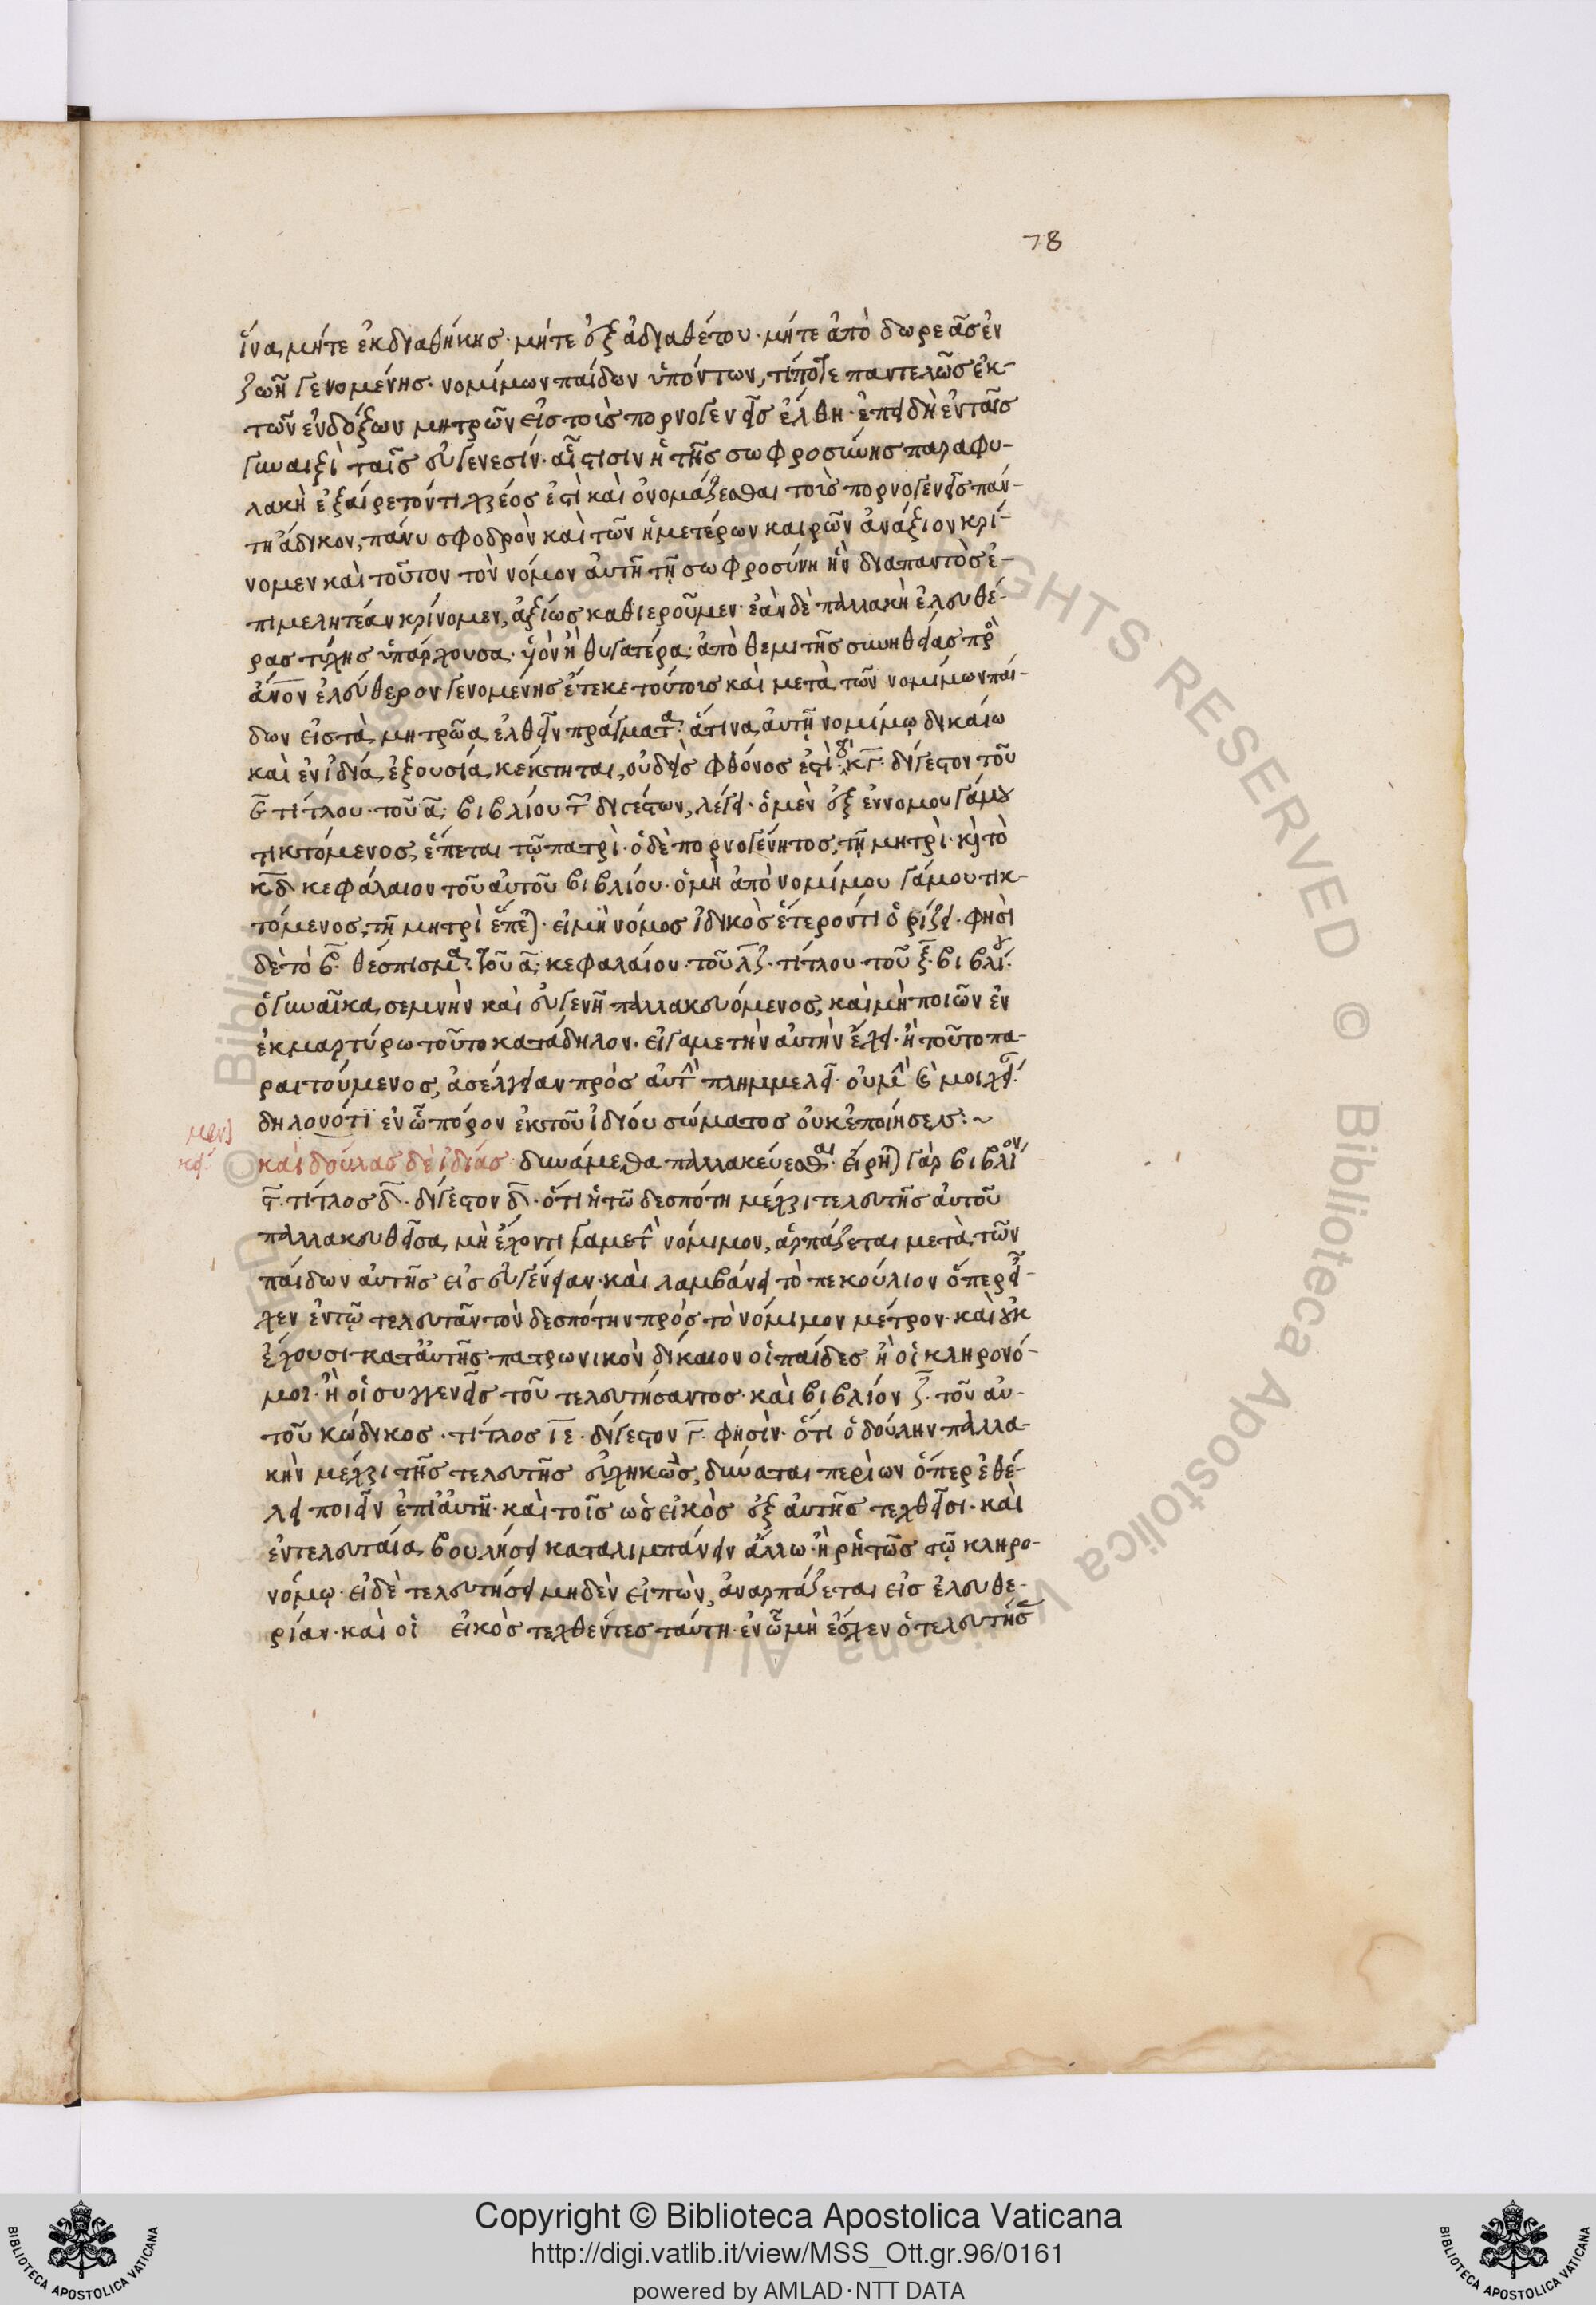 78
ἵνα μήτε ἐκ διαθήκης· μήτε ἐξ ἀδιαθέτου· μήτε ἀπὸ δωρεᾶς ἐν
ζωῇ γενομένης· νομίμων παίδων ὑπόντων, τίποτε παντελῶς ἐκ
τῶν ἐνδόξων μητρῶν εἰς τοὺς πορνογενεῖς ἔλθῃ· ἐπειδὴ ἐν ταῖς
γυναιξὶ ταῖς εὐγενεσίν· αἷς τισιν ἡ τῆς σωφροσύνης παραφυ-
λακὴ ἐξαίρετόν τι χρέος ἐστὶ καὶ ὀνομάζεσθαι τοὺς πορνογενεῖς πάν-
τη ἄδικον, πάνυ σφοδρὸν καὶ τῶν ἡμετέρων καιρῶν ἀνάξιον κρί-
νομεν καὶ τοῦτον τὸν νόμον αὐτῇ τῇ σωφροσύνῃ ἣν διαπαντὸς ἐ-
πιμελητέαν κρίνομεν, ἀξίως καθιεροῦμεν· ἐὰν δὲ παλλακὴ ἐλευθέ-
ρας τύχης ὑπάρχουσα· υἱὸν ἢ θυγατέρα· ἀπὸ θεμιτῆς συνηθείας πρὸ
ἄνον ἐλεύθερον γενομένης ἔτεκε τούτοις καὶ μετὰ τῶν νομίμων παί-
δων εἰς τὰ μητρῶα ἐλθεῖν πράγματα· ἅτινα αὐτῇ νομίμῳ δικαίω
καὶ ἐν ἰδία ἐξουσία κέκτηται, οὐδεὶς φθόνος ἐστὶ· κγ διγεστον τοῦ
ϛ τίτλου· τοῦ α· βιβλίου τ διγέστων, λέγει· ὁ μὲν ἐξ ἐννόμου γάμου
τικτόμενος, ἕπεται τῷ πατρὶ· ὁ δὲ πορνογένητος, τῇ μητρὶ· κὶ τὸ
κδ κεφάλαιον τοῦ αὐτοῦ βιβλίου· ὁ μὴ ἀπὸ νομίμου γάμου τικ-
τόμενος, τῇ μητρὶ ἕπε· εἰ μὴ νόμος ἰδικὸς ἕτερόν τι ὁρίζει· φησὶ
δὲ τὸ β· θέσπισμα· τοῦ α· κεφαλαίου· τοῦ λζ· τίτλου· τοῦ ξ· βιβλίου·
ὁ γυναῖκα σεμνὴν καὶ εὐγενῆ παλλακευόμενος, καὶ μὴ ποιῶν ἐν
ἐκμαρτύρω τοῦτο κατάδηλον· εἰ γαμετὴν αὐτὴν ἔχει· ἢ τοῦτο πα-
ραιτούμενος, ἀσέλγειαν πρὸς αὐτ πλημμελεῖ· οὐ μ ὲ μοιχεί·
δηλονότι ἐν ᾧ πόρον ἐκ τοῦ ἰδίου σώματος οὐκ ἐποίησεν:~
καὶ δούλας δὲ ἰδίας δυνάμεθα παλλακεύεσθαι· εἴρη γὰρ βιβλίον
ϛ· τίτλος δ· διγεστον δ· ὅτι ἡ τῶ δεσπότη μέχρι τελευτῆς αὐτοῦ
παλλακευθεῖσα, μὴ ἔχοντι γαμετ νόμιμον, ἁρπάζεται μετὰ τῶν
παίδων αὐτῆς εἰς εὐγένειαν· καὶ λαμβάνει τὸ πεκούλιον ὅπερ εἶ-
χεν ἐν τῷ τελευτᾶν τὸν δεσπότην πρὸς τὸ νόμιμον μέτρον· καὶ οὐκ
ἔχουσι· κατ' αὐτῆς πατρωνικὸν δίκαιον οἱ παῖδες· ἢ οἱ κληρονό-
μοι· ἢ οἱ συγγενεῖς τοῦ τελευτήσαντος· καὶ βιβλίον ζ· τοῦ αὐ-
τοῦ κώδικος· τίτλος ιε· διγεστον γ· φησὶν· ὅτι ὁ δούλην παλλα-
κὴν μέχρι τῆς τελευτῆς ἐσχηκὼς, δύναται περίων ὅπερ ἐθέ-
λει ποιεῖν ἐπ' αὐτῇ· καὶ τοῖς ὡς εἰκὸς ἐξ αὐτῆς τεχθεῖσι· καὶ
ἐν τελευταία βουλήσει καταλιμπάνειν ἄλλω· ἢ ῥητῶς τῷ κληρο-
νόμῳ· εἰ δὲ τελευτήσει μηδὲν εἰπὼν, ἀναρπάζεται εἰς ἐλευθε-
ρίαν· καὶ οἱ εἰκὸς τεχθέντες ταύτη· ἐν ᾧ μὴ ἔσχεν ὁ τελευτήσ
Copyright © Biblioteca Apostolica Vaticana
http://digi.vatlib.it/view/MSS_Ott.gr.96/0161
powered by AMLAD·NTT DATA